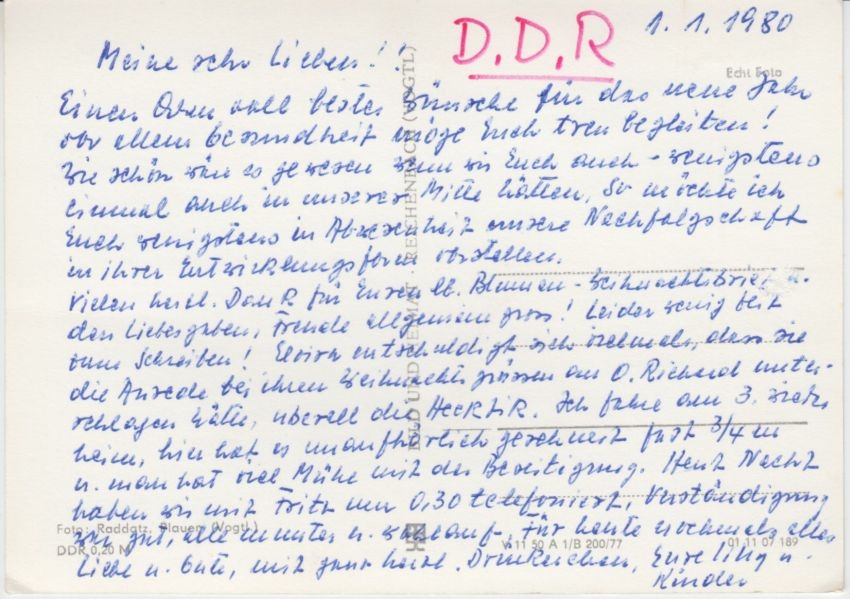 D.D.R
1.1.1980
Meine sehr Lieben!!
Echt Foto
Einen voll bester Wünsche für das neue Jahr
vor allem Gesundheit möge Euch treu begleiten!
Wie schön wäre es gewesen wenn wir Euch auch - wenigstens
einmal auch in unserer Mitte hätten, So möchte ich
Euch wenigstens in Abwesenheit unsere Nachfolgschaft
in ihrer Entwicklungsform vorstellen.
Vielen herzl. Dank für Euren lb. Blumen- Weihnachtsbrief u.
den Liebesgaben, Freude allgemein gross! Leider wenig Zeit
zum Schreiben! Elvira entschuldigt sich vielmals, dass sie
die Anrede bei ihren Weihnachtsgrüssen an O. Richard unter-
schlagen hätte, überall die Hecktik. Ich fahre am 3. wieder
heim, hier hat es unaufhörlich geschneit fast 3/4 m
u. man hat viel Mühe mit der Beseitigung. Heut Nacht
haben wir mit Fritz um 0,30 telefoniert, Verständigung
war gut, alle munter u. wohlauf. Für heute nochmals alles
Liebe u. Gute, mit ganz herzl. Drückerchen, Eure u.
Kinder
BILD UND HEIMAT · REICHENBACH (VOGTL)
Foto: Raddatz, Plauen (Vogtl.)
DDR 0,20 M
V 11 50 A 1/B 200/77
01 11 07 189